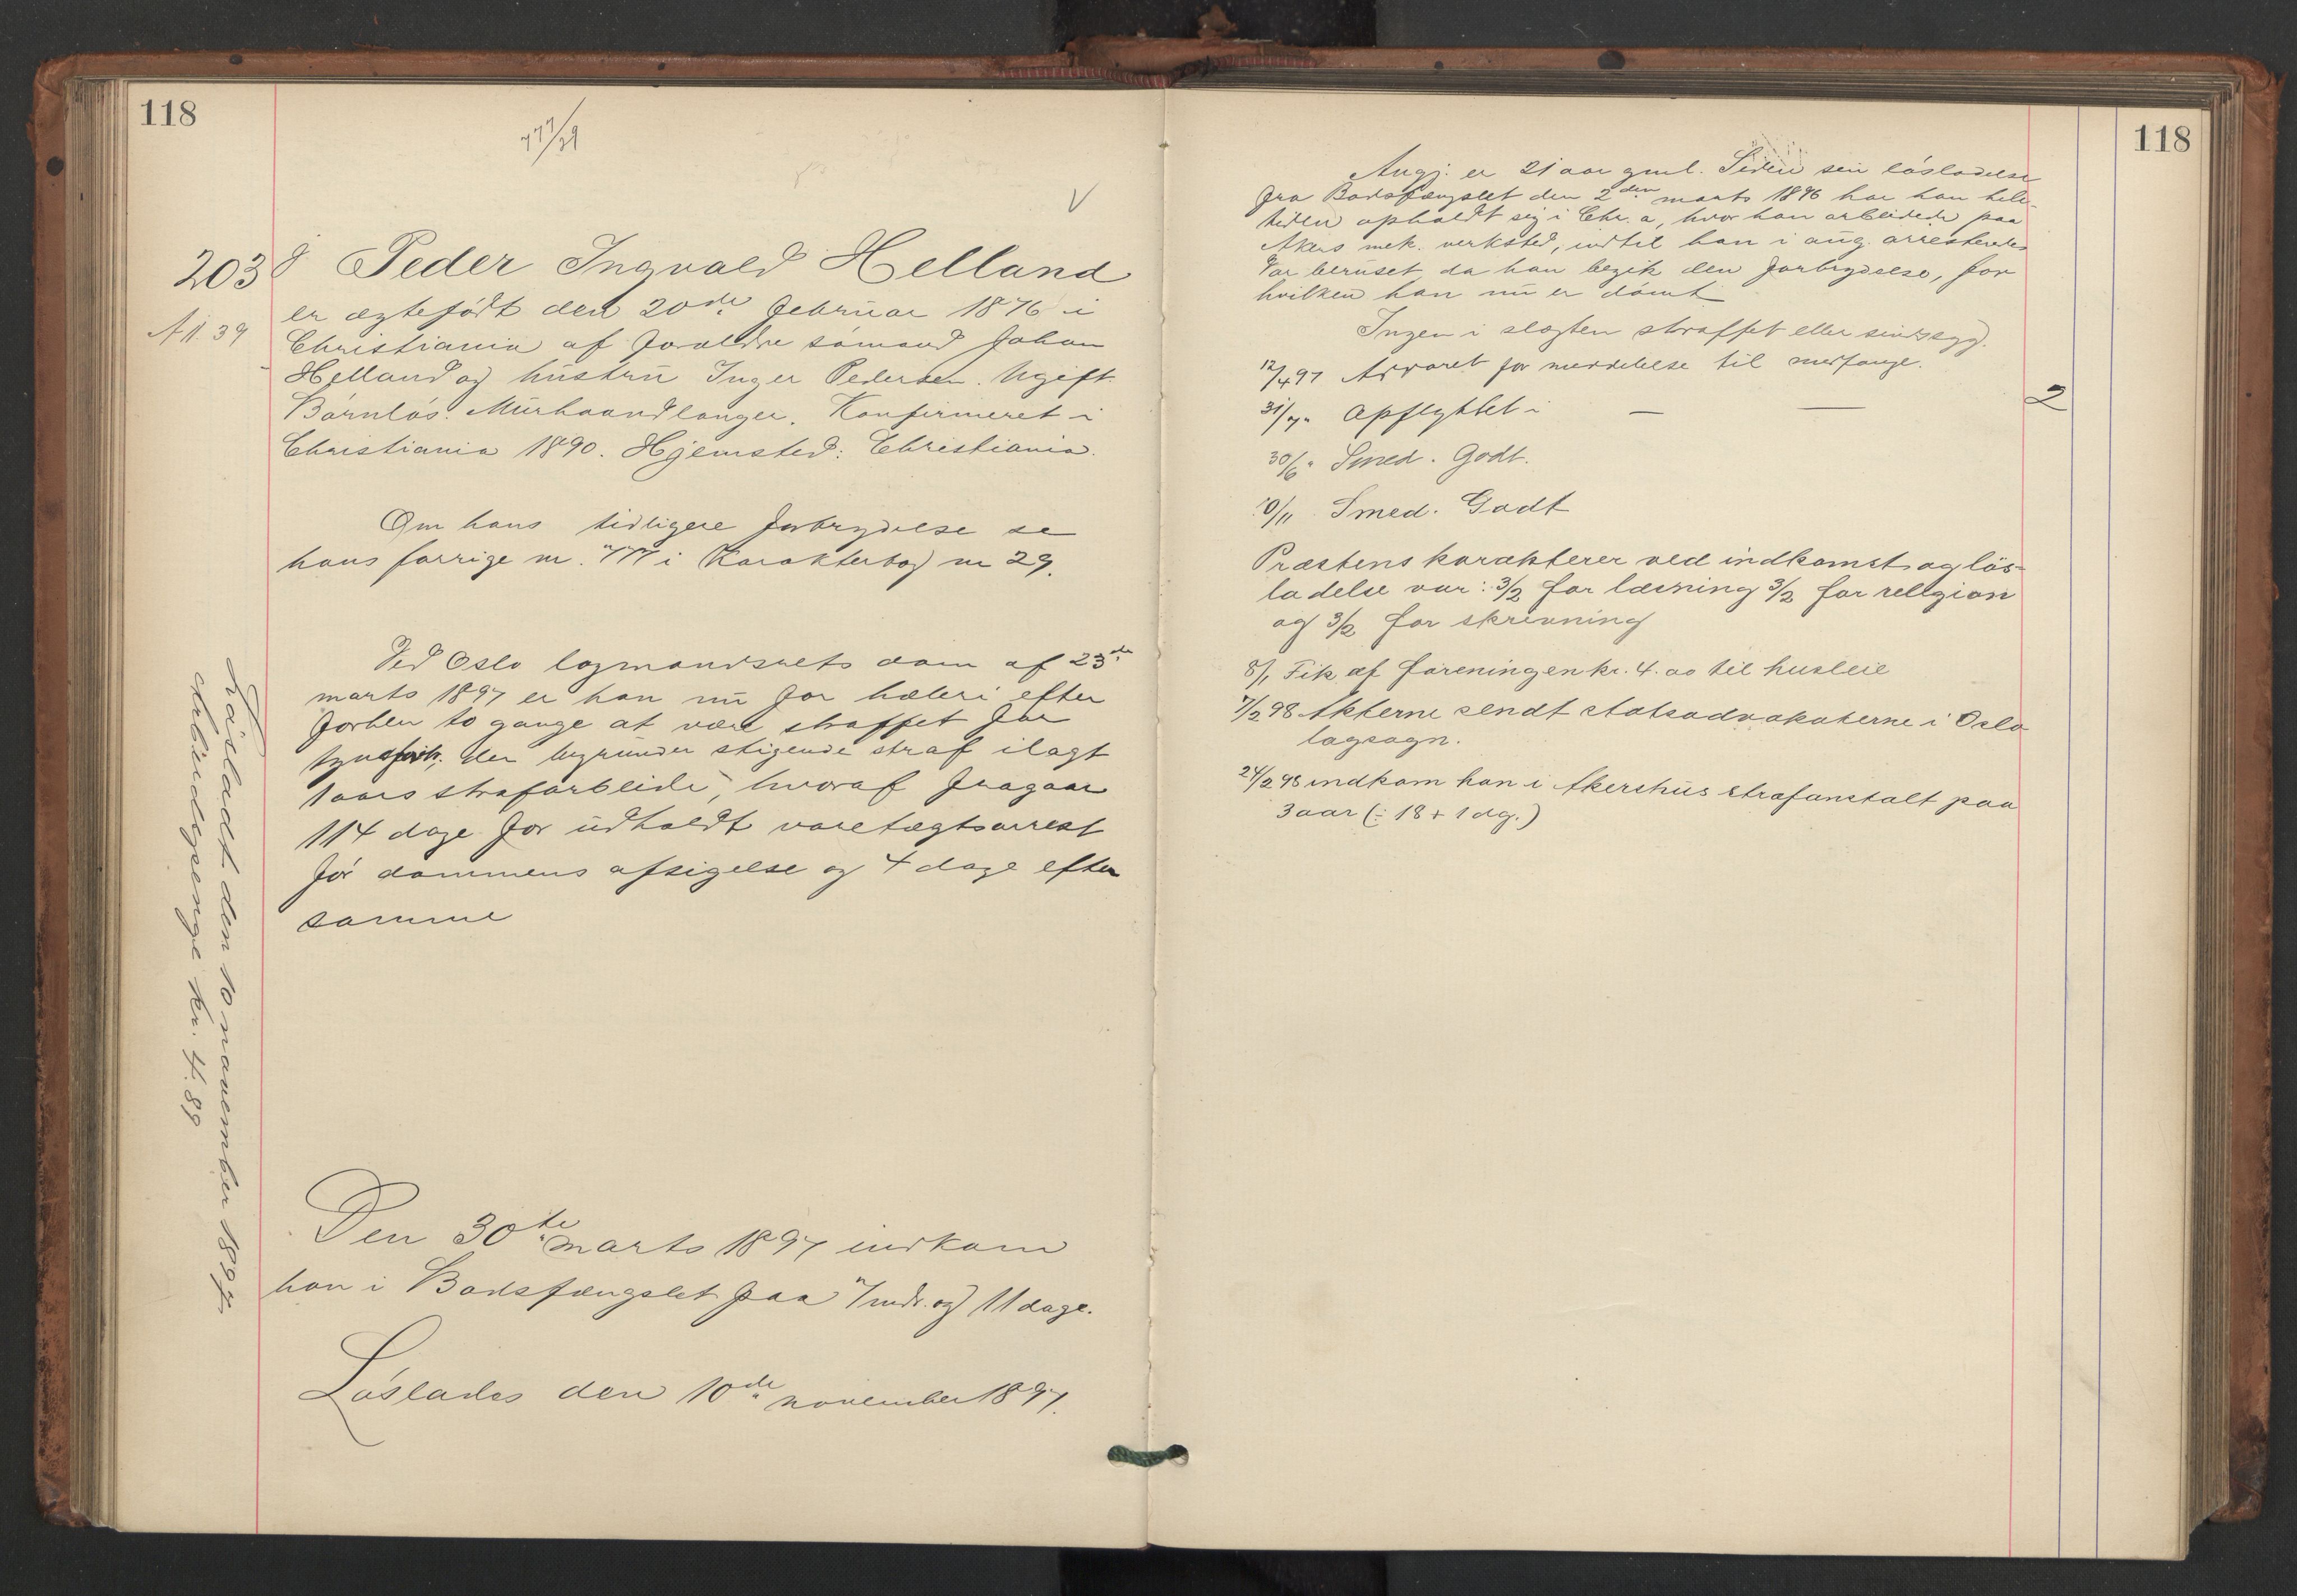 118
777/29
V
203 Peder Ingvald Helland
A 11. 39
er ægtefødt den 20de februar 1876 i
Christiania af forældre sømand Johan
Helland og hustru Inger Pedersen. Ugift.
Barnløs. Murhaandlanger. Konfirmeret i
Christiania 1890. Hjemsted: Christiania.
Om hans tidligere forbrydelse se
hans forrige nr. 777 i Karakterbog nr 29.
Ved Oslo lagmandsrets dom af 23de
marts 1897 er han nu for hæleri efter
forhen to gange at være straffet for
tyveri, der begrunder stigende straf ilagt
1 aars strafarbeide, hvoraf fragaar
114 dage for udholdt varetægtsarrest
før dommens afsigelse og 4 dage efter
samme
Den 30te marts 1897 indkom
han i Bodsfængslet paa 7 mdr. og 11 dage.
Løslades den 10de november 1897.
Løsladt den 10 november 1897.
Arbeidspenge kr. 4.89
118
Angj. er 21 aar gml. Siden sin løsladelse
fra Bodsfængslet den 2den marts 1896 har han hele
tiden opholdt sig i Chr.a, hvor han arbeidede paa
Akers mek. verksted, indtil han i aug. arresteredes
Var beruset, da han begik den forbrydelse, for
hvilken han nu er dømt
Ingen i slægten straffet eller sindssyg.
12/4 97 Advaret for meddelelse til medfange.
31/7 " Opflyttet i — — 2
30/6 " Smed. Godt.
10/11 Smed. Godt
Præstens karakterer ved indkomst og løs-
ladelse var: 3/2 for læsning 3/2 for religion
og 3/2 for skrivning
8/1 Fik af foreningen kr. 4.00 til husleie
7/2 98 Akterne sendt statsadvokaterne i Oslo
lagsogn.
24/2 98 indkom han i Akershus strafanstalt paa
3 aar (÷ 18 + 1 dg.)